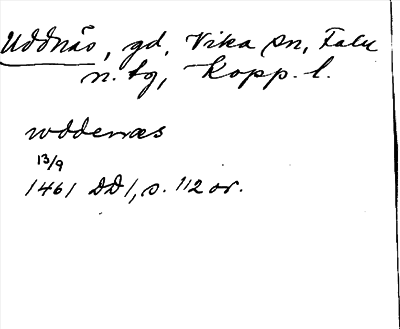 Uddnäs, gd, Vika sn, Falu
n. tg, Kopp. l.
wddenæs
13/9
1461 DD1, s. 112 or.